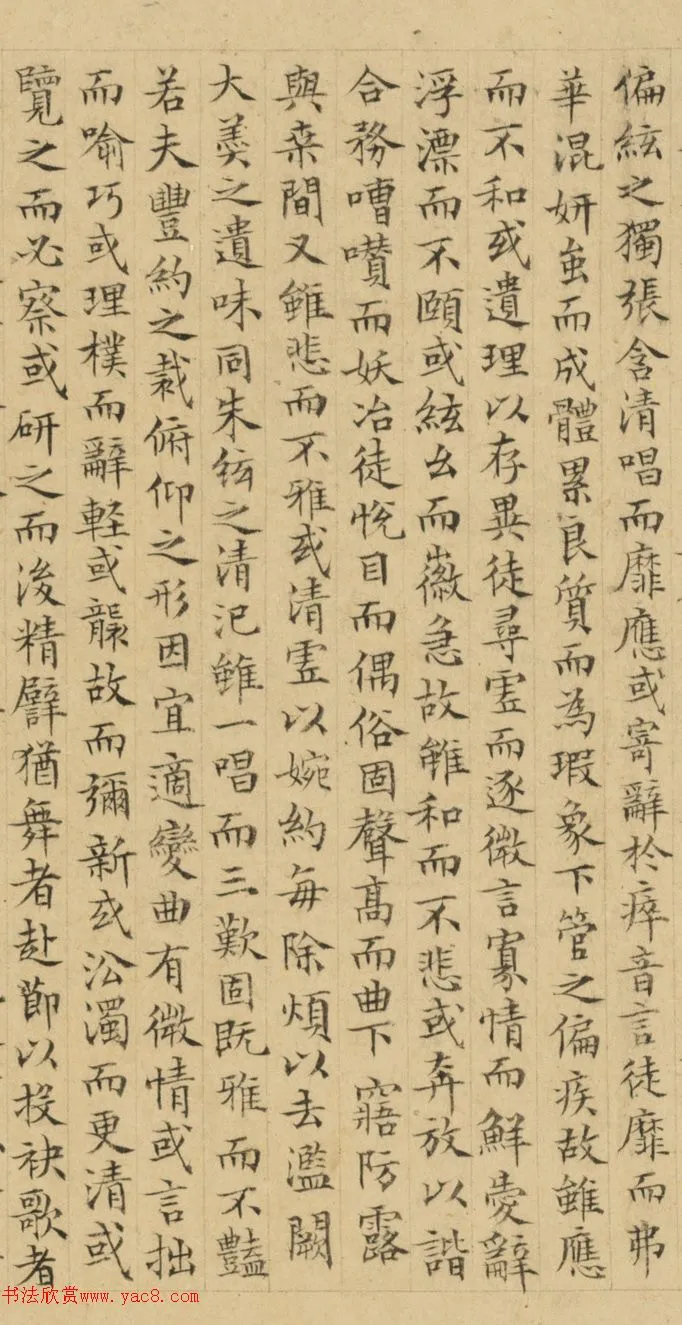 偏絃之獨張含清唱而靡應或寄辭於瘁音言徒靡而弗
華混妍蚩而成體累良質而為瑕象下管之偏疾故雖應
而不和或遺理以存異徒尋虛而逐微言寡情而鮮愛辭
浮漂而不頤或絃幺而徽急故雖和而不悲或奔放以諧
合務嘈囋而妖冶徒悅目而偶俗固聲高而曲下寤防露
與桒間又雖悲而不雅或清虛以婉約每除煩以去濫闕
大羮之遺味同朱絃之清汜雖一唱而三歎固既雅而不豔
若夫豐約之裁俯仰之形因宜適變曲有微情或言拙
而喻巧或理樸而辭軽或襲故而彌新或沿濁而更清或
覽之而必察或研之而後精譬猶舞者赴節以投袂歌者
书法欣赏www.yac8.com